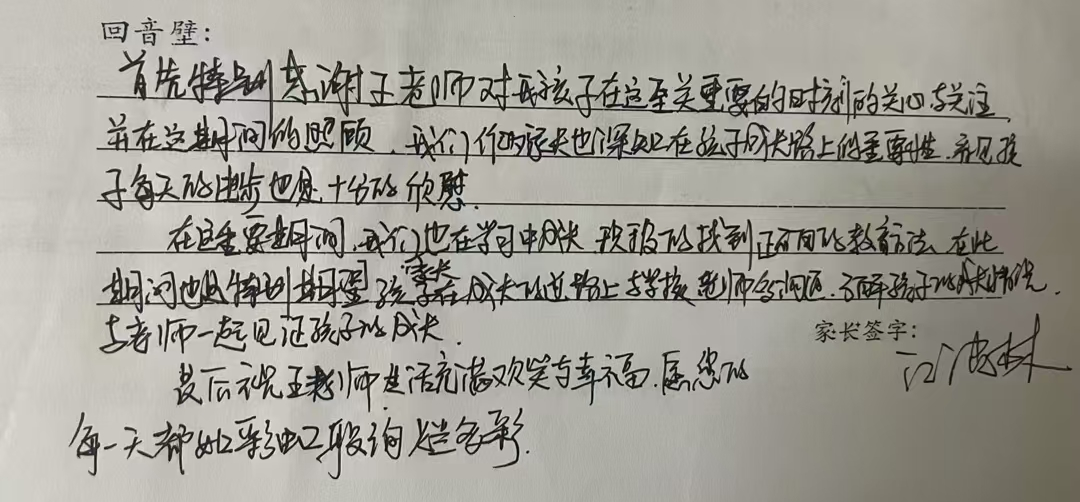 回音壁：
首先特别感谢王老师对我孩子在这至关重要的时刻的关心与关注
并在这期间的照顾，我们作为家长也深知在孩子成长路上的重要性，看见孩
子每天的进步也是十分的欣慰。
在这重要期间，我们也在学习中成长，积极的找到正面的教育方法，在此
期间也是特别期望孩家长在成长的道路上与学校老师多沟通，了解孩子的成长情况，
与老师一起见证孩子的成长。
家长签字：
最后祝王老师生活充满欢笑与幸福，愿您的
每一天都如彩虹般绚烂多彩。